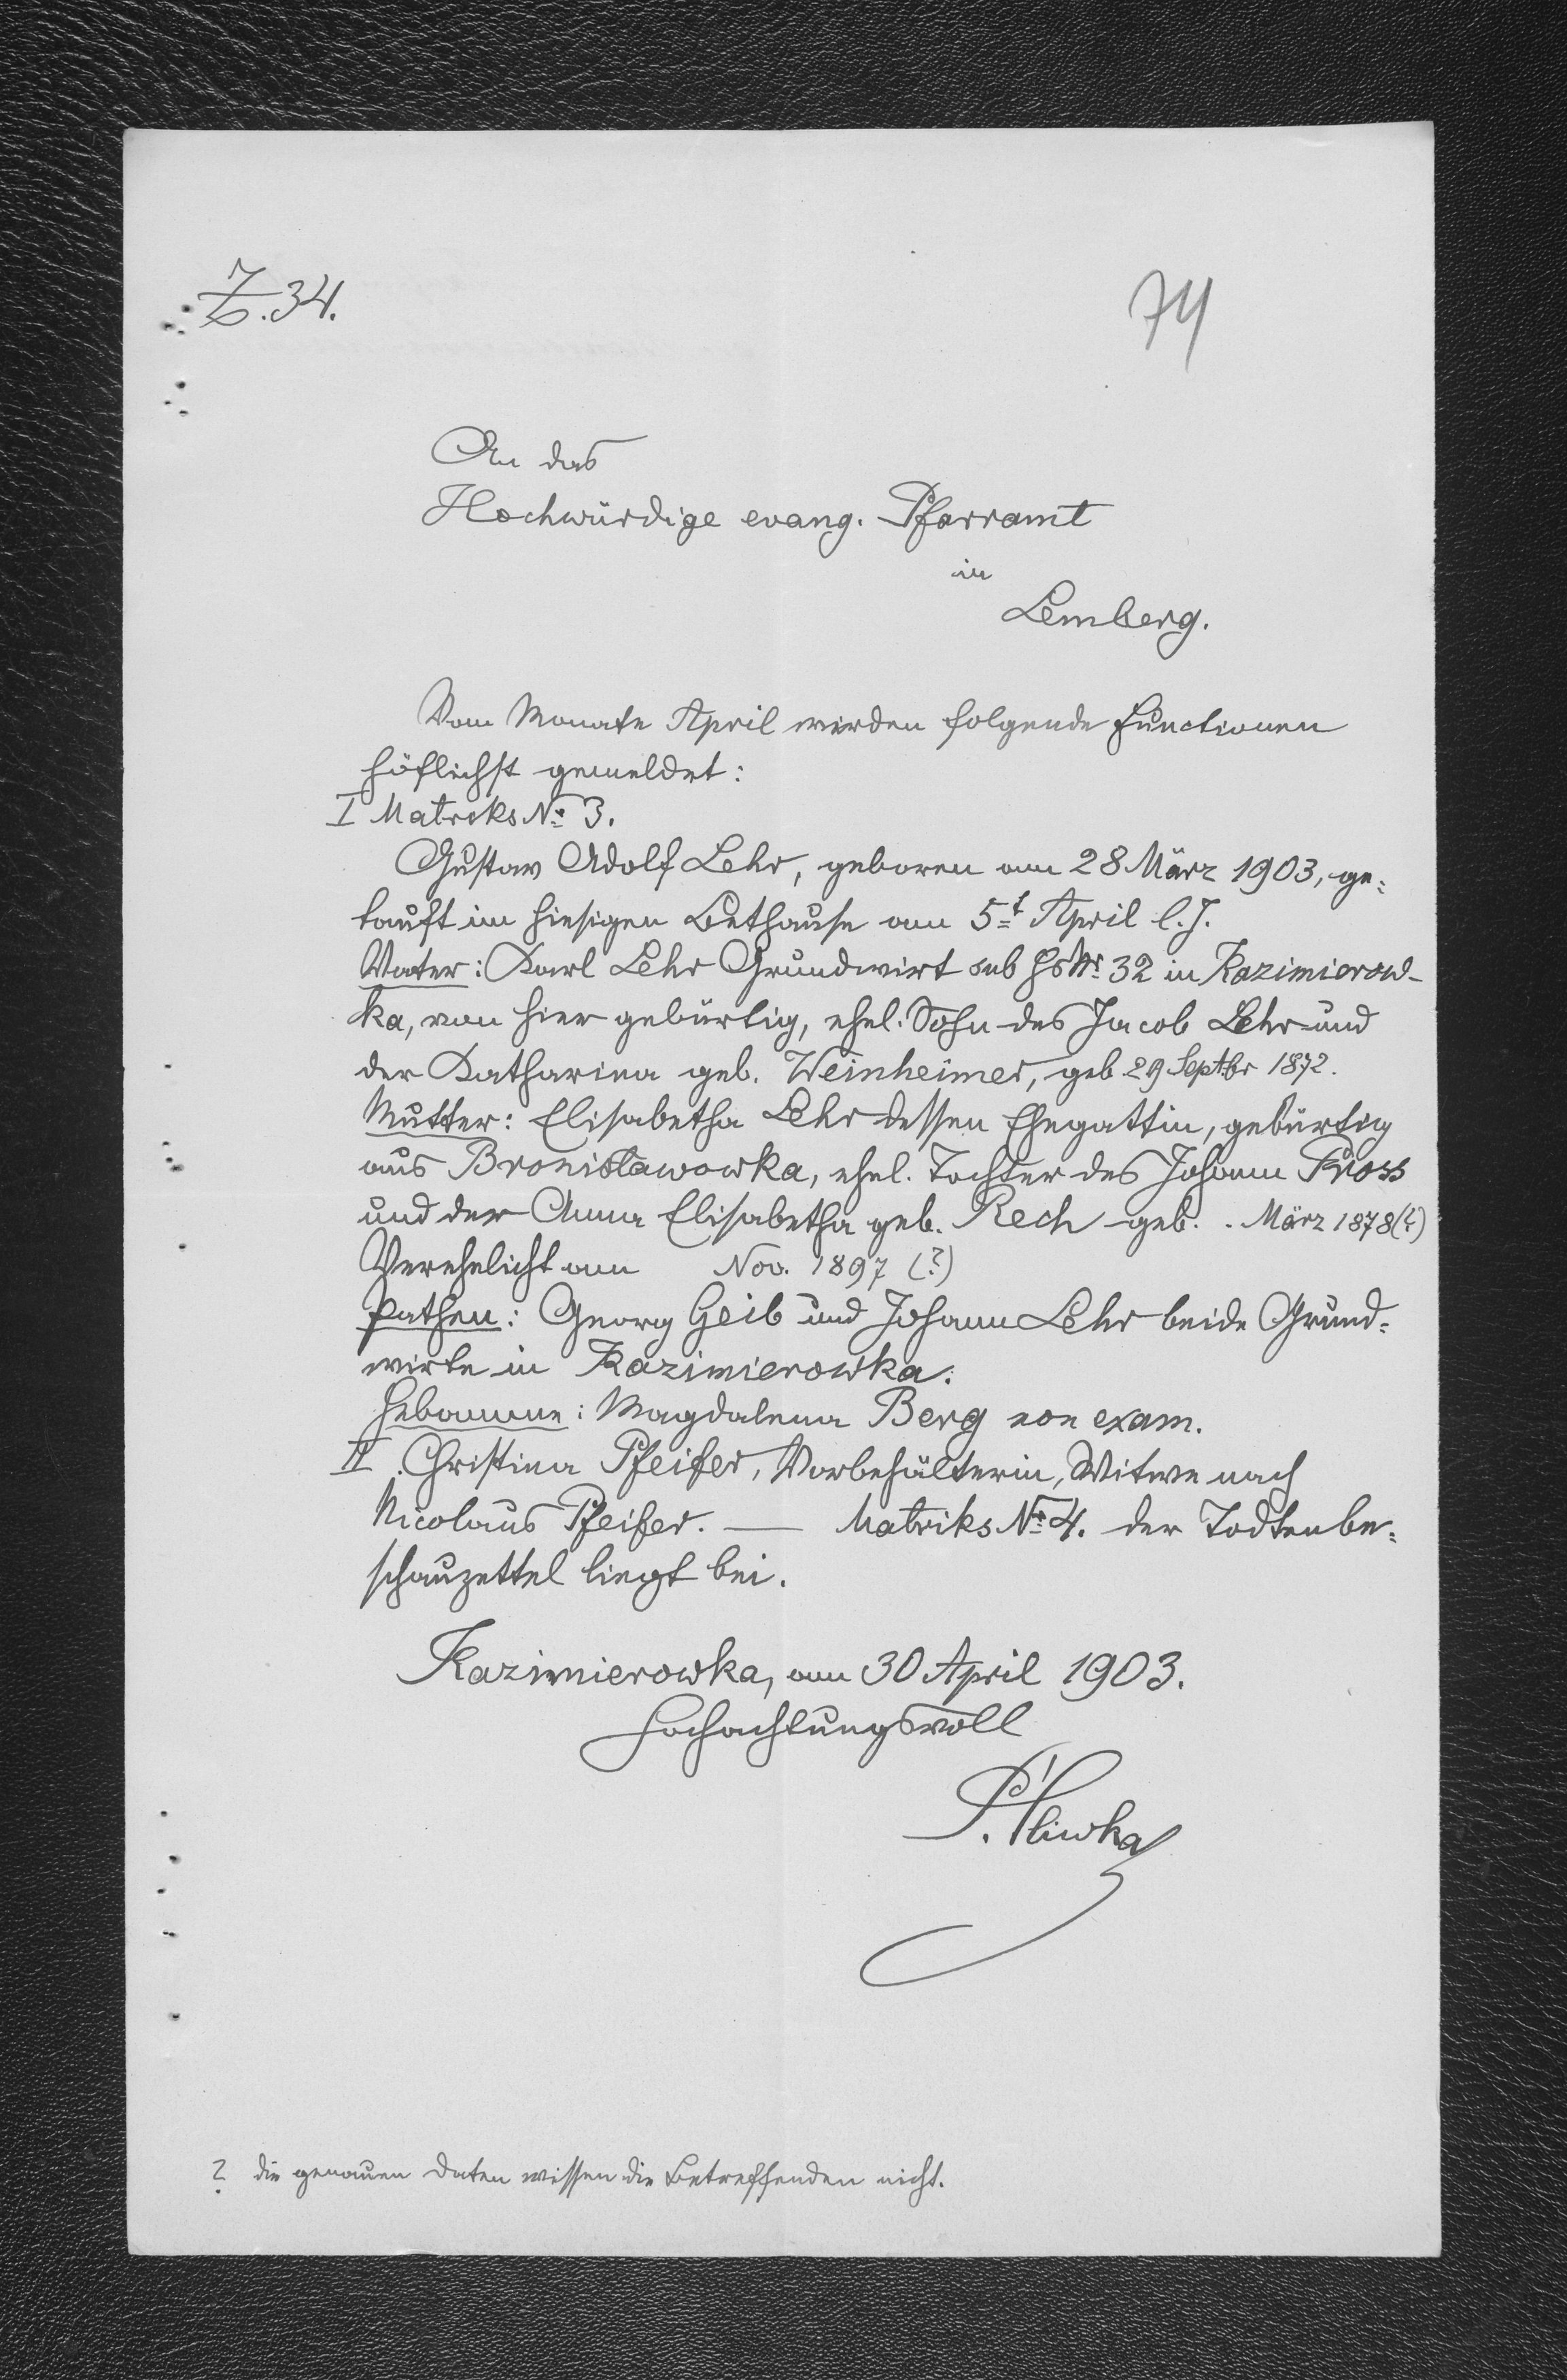 Z. 34.
74
An das
Hochwürdige evang. Pfarramt
in
Lemberg.
Vom Monate April werden folgende Functionen
höflichst gemeldet:
I Matriks № 3.
Gustav Adolf Lehr, geboren am 28 März 1903, ge=
tauft im hiesigen Bethause am 5t April l. J.
Vater: Karl Lehr Grundwirt sub Hs Nr 32 in Kazimierow-
ka, von hier gebürtig, ehel. Sohn des Jacob Lehr und
der Katharina geb. Weinheimer, geb 29 Septbr 1872.
Mutter: Elisabetha Lehr dessen Ehegattin, gebürtig
aus Bronisławowka, ehel. Tochter des Johann Pross
und der Anna Elisabetha geb. Rech geb. . März 1878 (?)
Verehelicht am Nov. 1897 (?)
Pathen: Georg Geib und Johann Lehr beide Grund=
wirte in Kazimierowka.
Hebamme: Magdalena Berg non exam.
II. Christina Pfeifer, Vorbehälterin, Witwe nach
Nicolaus Pfeifer. — Matriks № 4. der Todtenbe=
schauzettel liegt bei.
Kazimierowka, am 30 April 1903.
Hochachtungsvoll
P. Śliwka
? die genauen Daten wissen die Betreffenden nicht.